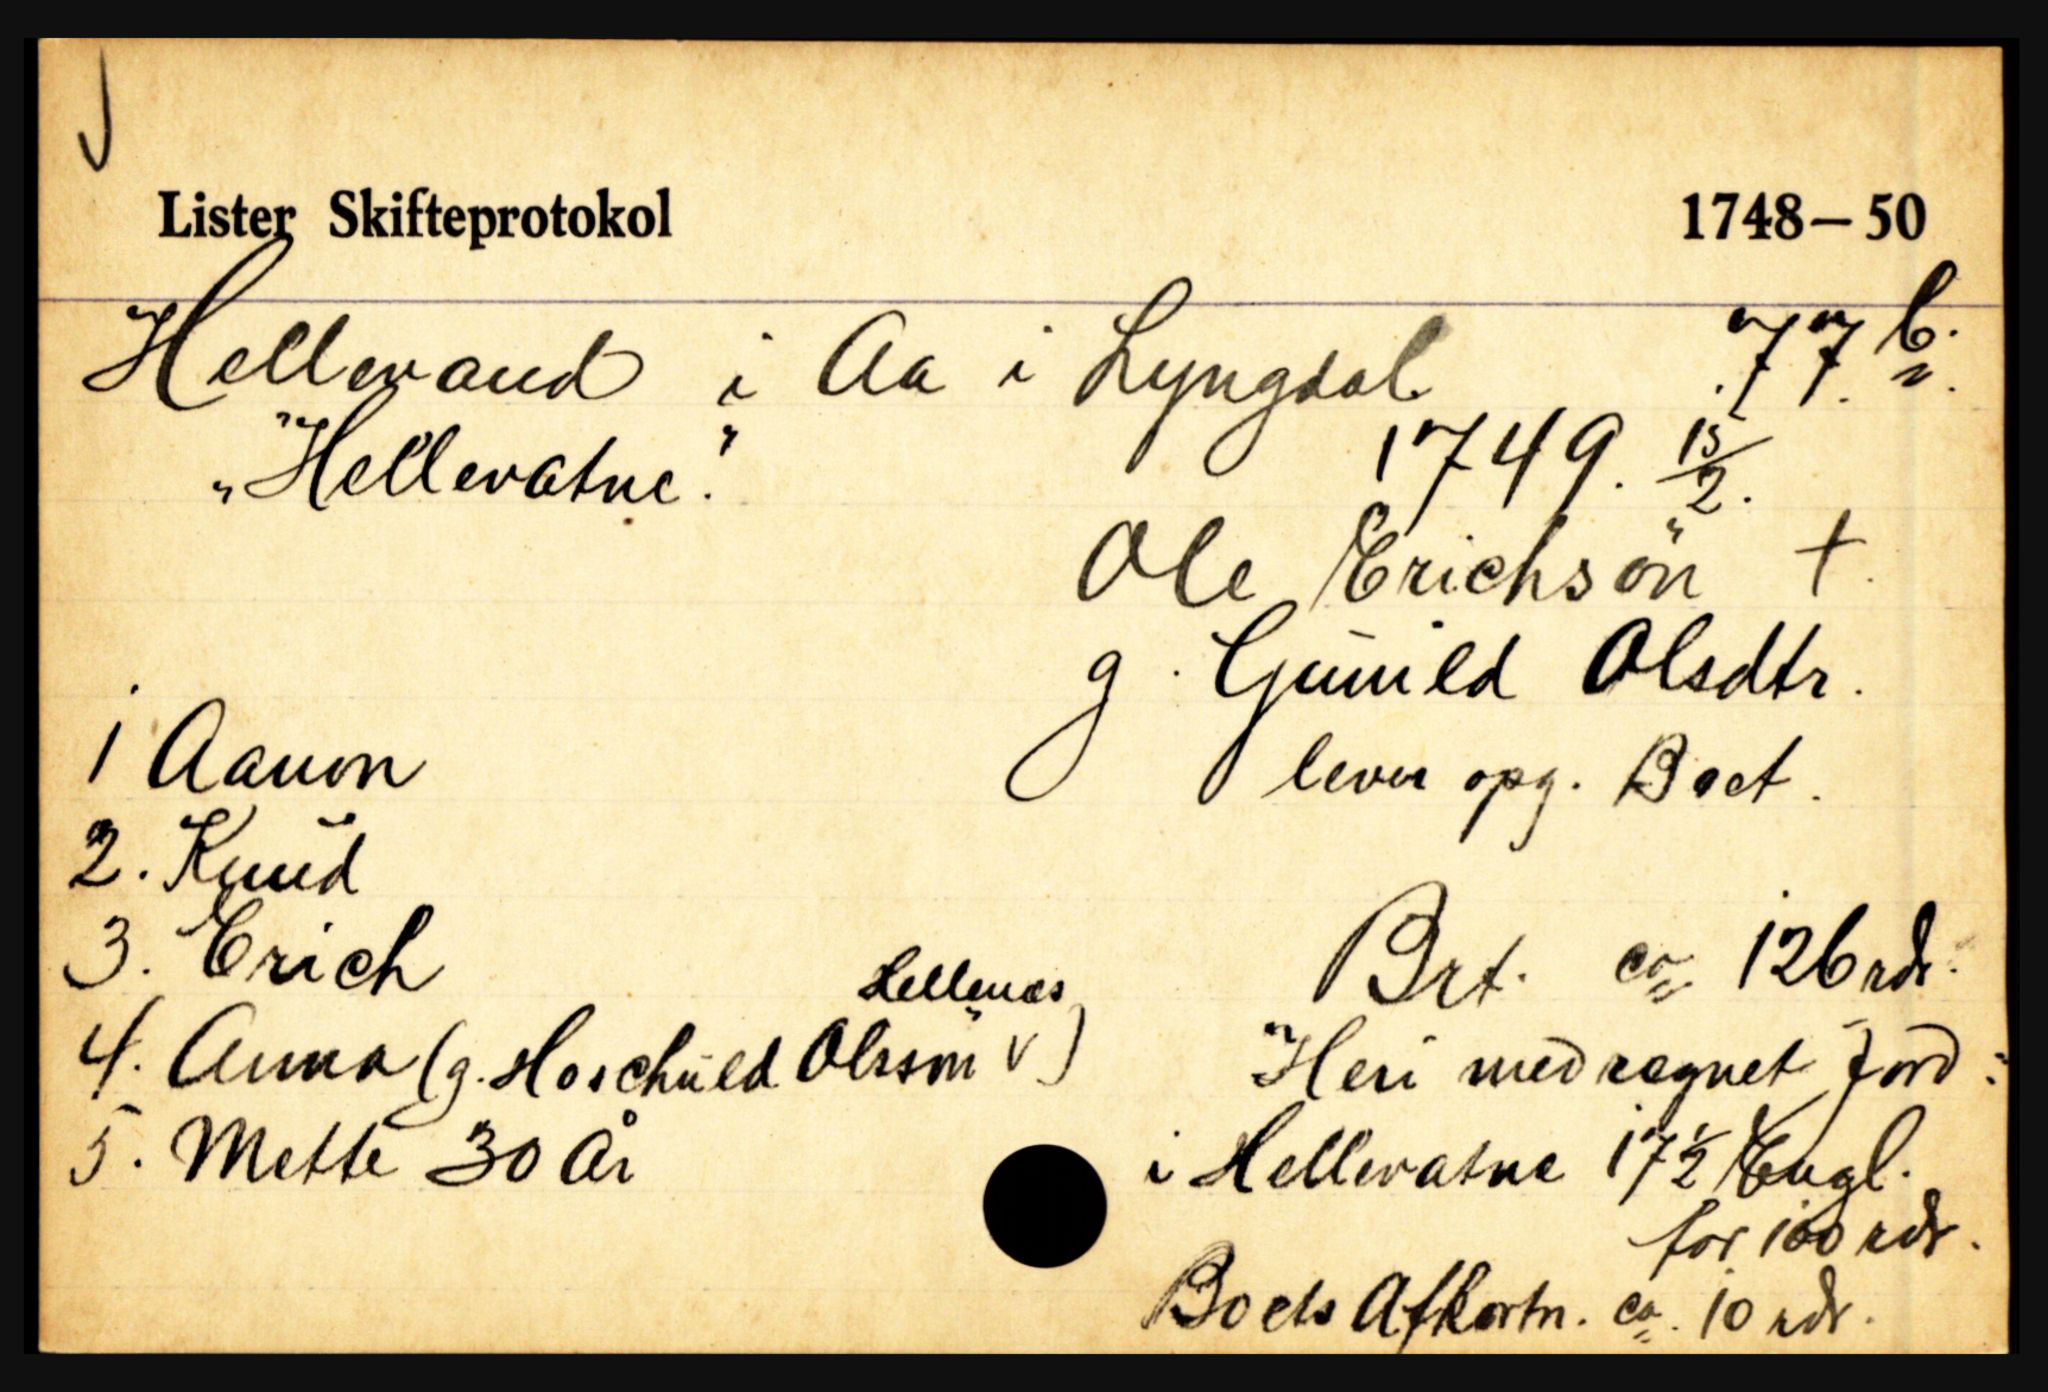 Lister Skifteprotokol 1748-50
Hellevand i Aa i Lyngdal. 77 b.
"Hellevatne." 1749. 15/2.
Ole Erichsön +.
g. Gunild Olsdtr.
lever opg. Boet.
1 Aanon
2. Knud
3. Erich
Brt. ca 126 rdr.
4. Anna (g. Hoschuld Olssön v Hellenæs)
Heri medregnet Jord:
5. Mette 30 År
i Hellevatne 17 1/2 Engl.
for 100 rdr.
Boets Afkortn. ca. 10 rdr.